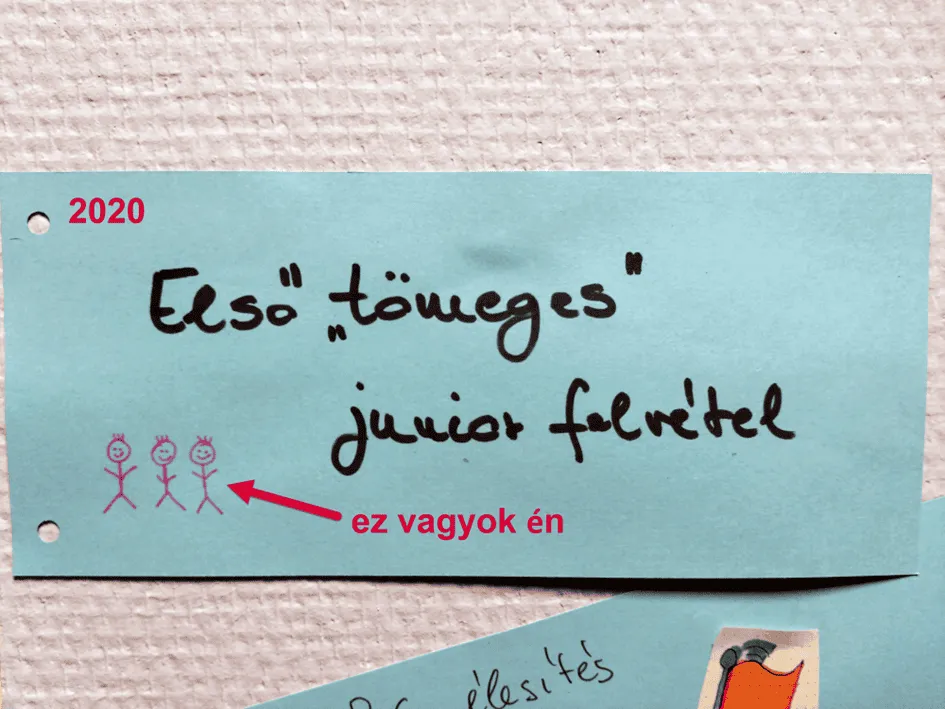 2020
Első „tömeges"
junior felvétel
ez vagyok én
élesítés